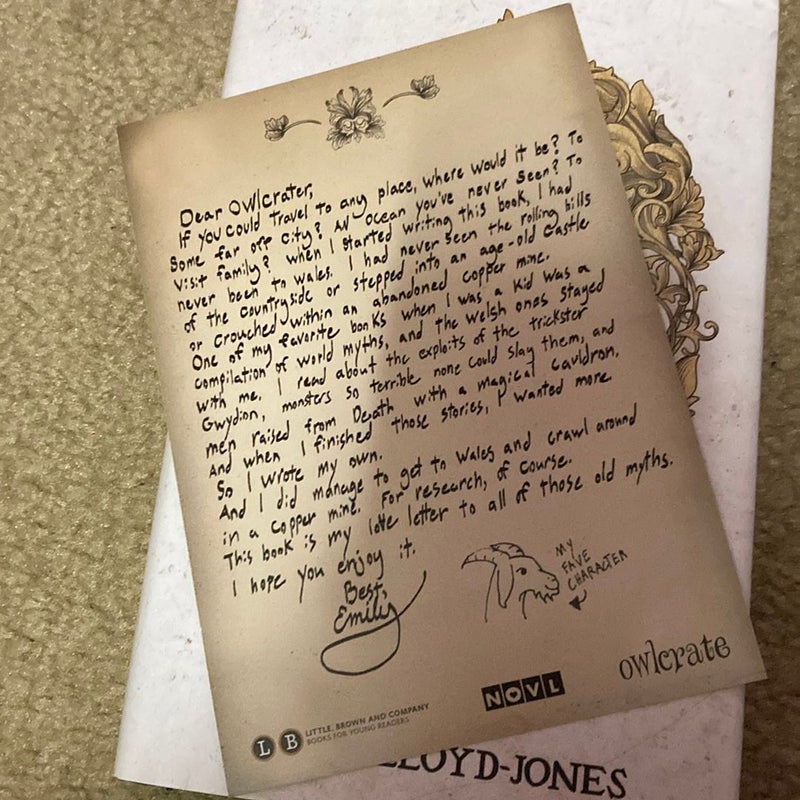 Dear Owlcrater,
If you could travel to any place, where would it be? To
some far off city? An ocean you've never seen? To
visit family? When I started writing this book, I had
never been to Wales. I had never seen the rolling hills
of the countryside or stepped into an age-old castle
or crouched within an abandoned copper mine.
One of my favorite books when I was a kid was a
compilation of world myths, and the Welsh ones stayed
with me. I read about the exploits of the trickster
Gwydion, monsters so terrible none could slay them, and
men raised from Death with a magical cauldron.
And when I finished those stories, I wanted more
So I wrote my own.
And I did manage to get to Wales and crawl around
in a copper mine. For research, of course.
This book is my love letter to all of those old myths.
I hope you enjoy it.
Best,
Emily
MY
FAVE
CHARACTER
LB LITTLE, BROWN AND COMPANY
BOOKS FOR YOUNG READERS
NOVL
owlcrate
LLOYD-JONES